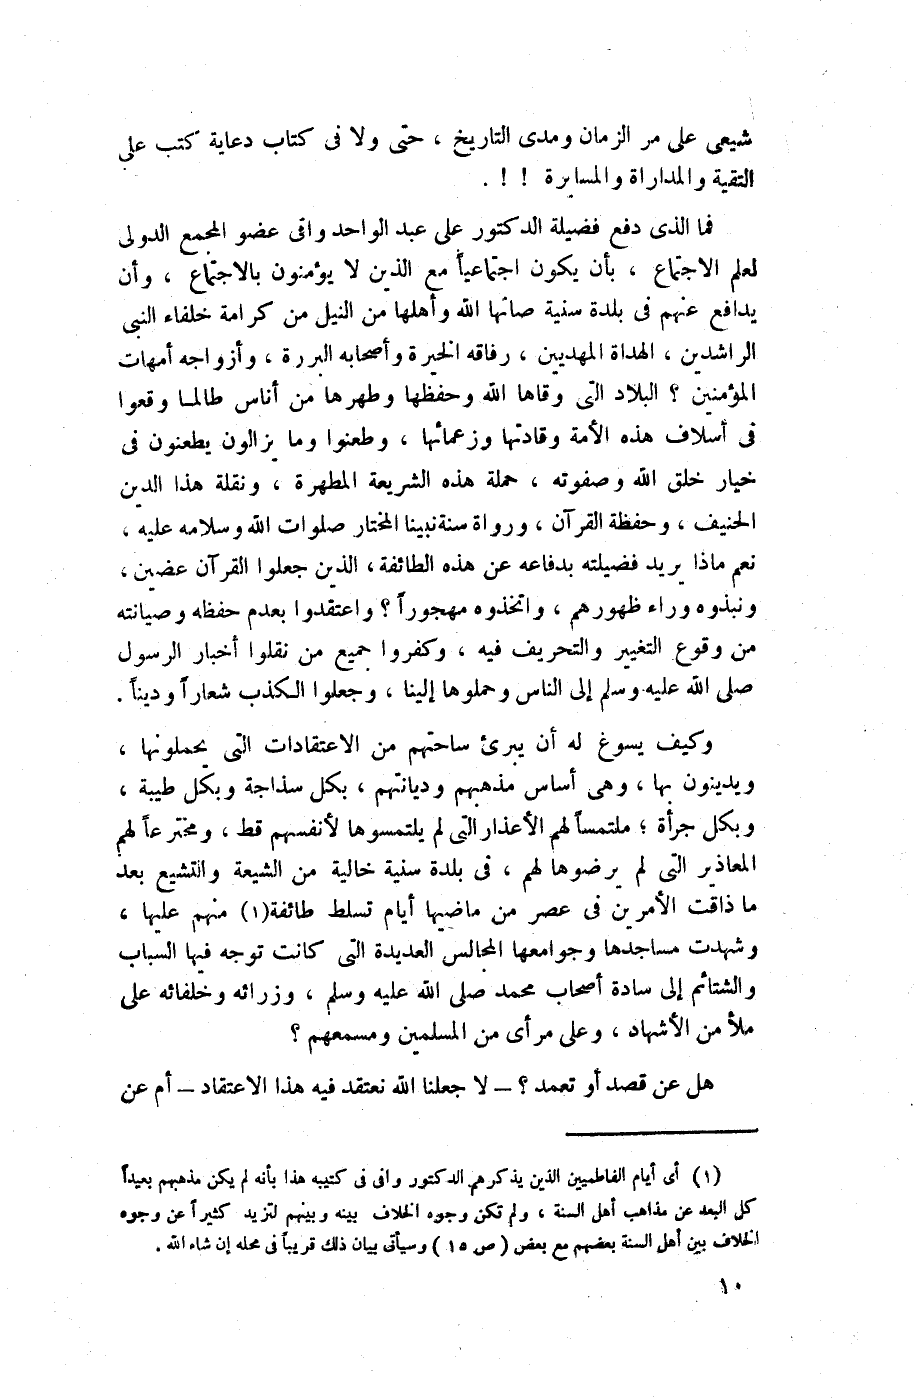 شيعى على مر الزمان ومدى التاريخ ، حتى ولا فى كتاب دعاية كتب على
التقية والمداراة والمسايرة ! ! .
فما الذى دفع فضيلة الدكتور على عبد الواحد وافى عضو المجمع الدولى
لعلم الاجتماع ، بأن يكون اجتماعياً مع الذين لا يؤمنون بالاجتماع ، وأن
يدافع عنهم فى بلدة سنية صانها الله وأهلها من النيل من كرامة خلفاء النبى
الراشدين ، الهداة المهديين ، رفاقه الخيرة وأصحابه البررة ، وأزواجه أمهات
المؤمنين ؟ البلاد التى وقاها الله وحفظها وطهرها من أناس طالما وقعوا
فى أسلاف هذه الأمة وقادتها وزعمائها ، وطعنوا وما يزالون يطعنون فى
خيار خلق الله وصفوته ، حملة هذه الشريعة المطهرة ، ونقلة هذا الدين
الحنيف ، وحفظة القرآن ، ورواة سنة نبينا المختار صلوات الله وسلامه عليه ،
نعم ماذا يريد فضيلته بدفاعه عن هذه الطائفة ، الذين جعلوا القرآن عضين ،
ونبذوه وراء ظهورهم ، واتخذوه مهجوراً ؟ واعتقدوا بعدم حفظه وصيانته
من وقوع التغيير والتحريف فيه ، وكفروا جميع من نقلوا أخبار الرسول
صلى الله عليه وسلم إلى الناس وحملوها إلينا ، وجعلوا الكذب شعاراً وديناً .
وكيف يسوغ له أن يبرئ ساحتهم من الاعتقادات التى يحملونها ،
ويدينون بها ، وهى أساس مذهبهم وديانتهم ، بكل سذاجة وبكل طيبة ،
وبكل جرأة ؛ ملتمساً لهم الأعذار التى لم يلتمسوها لأنفسهم قط ، ومخترعاً لهم
المعاذير التى لم يرضوها لهم ، فى بلدة سنية خالية من الشيعة والتشيع بعد
ما ذاقت الأمرين فى عصر من ماضيها أيام تسلط طائفة(١) منهم عليها ،
وشهدت مساجدها وجوامعها المجالس العديدة التى كانت توجه فيها السباب
والشتائم إلى سادة أصحاب محمد صلى الله عليه وسلم ، وزرائه وخلفائه على
ملأ من الأشهاد ، وعلى مرأى من المسلمين ومسمعهم ؟
هل عن قصد أو تعمد ؟ – لا جعلنا الله نعتقد فيه هذا الاعتقاد – أم عن
(١) أى أيام الفاطميين الذين يذكرهم الدكتور وافى فى كتيبه هذا بأنه لم يكن مذهبهم بعيداً
كل البعد عن مذاهب أهل السنة ، ولم تكن وجوه الخلاف بينه وبينهم لتزيد كثيراً عن وجوه
الخلاف بين أهل السنة بعضهم مع بعض ( ص ١٥ ) وسيأتى بيان ذلك قريباً فى محله إن شاء الله .
١٠